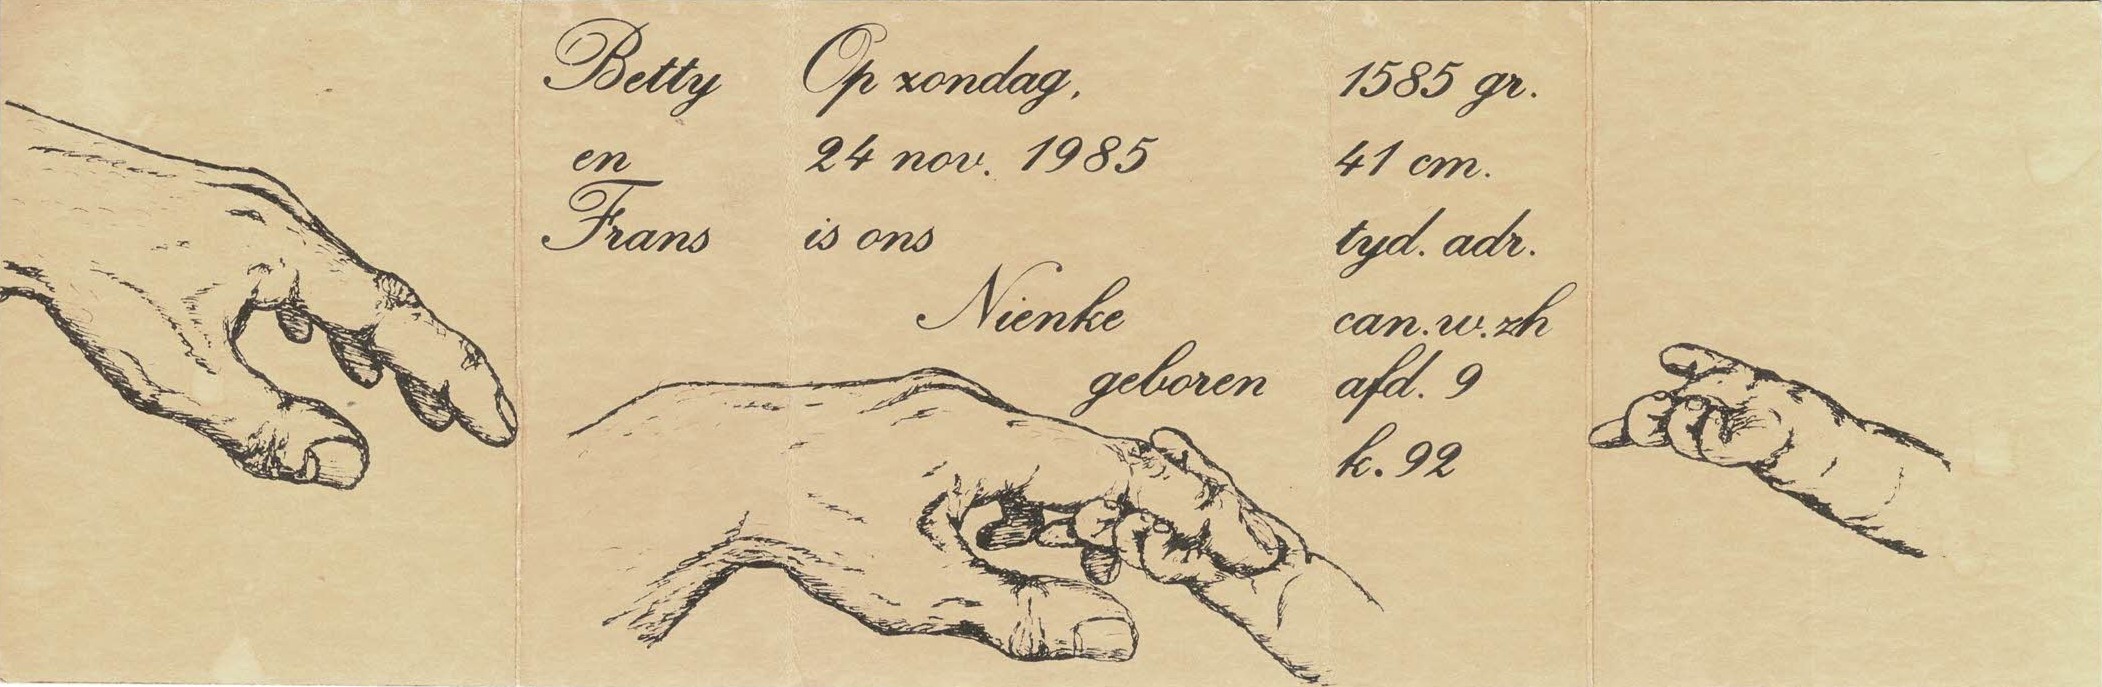 Betty
en
Frans
Op zondag,
24 nov. 1985
is ons
Nienke
geboren
1585 gr.
41 cm.
tyd. adr.
can.w.zh
afd. 9
k. 92